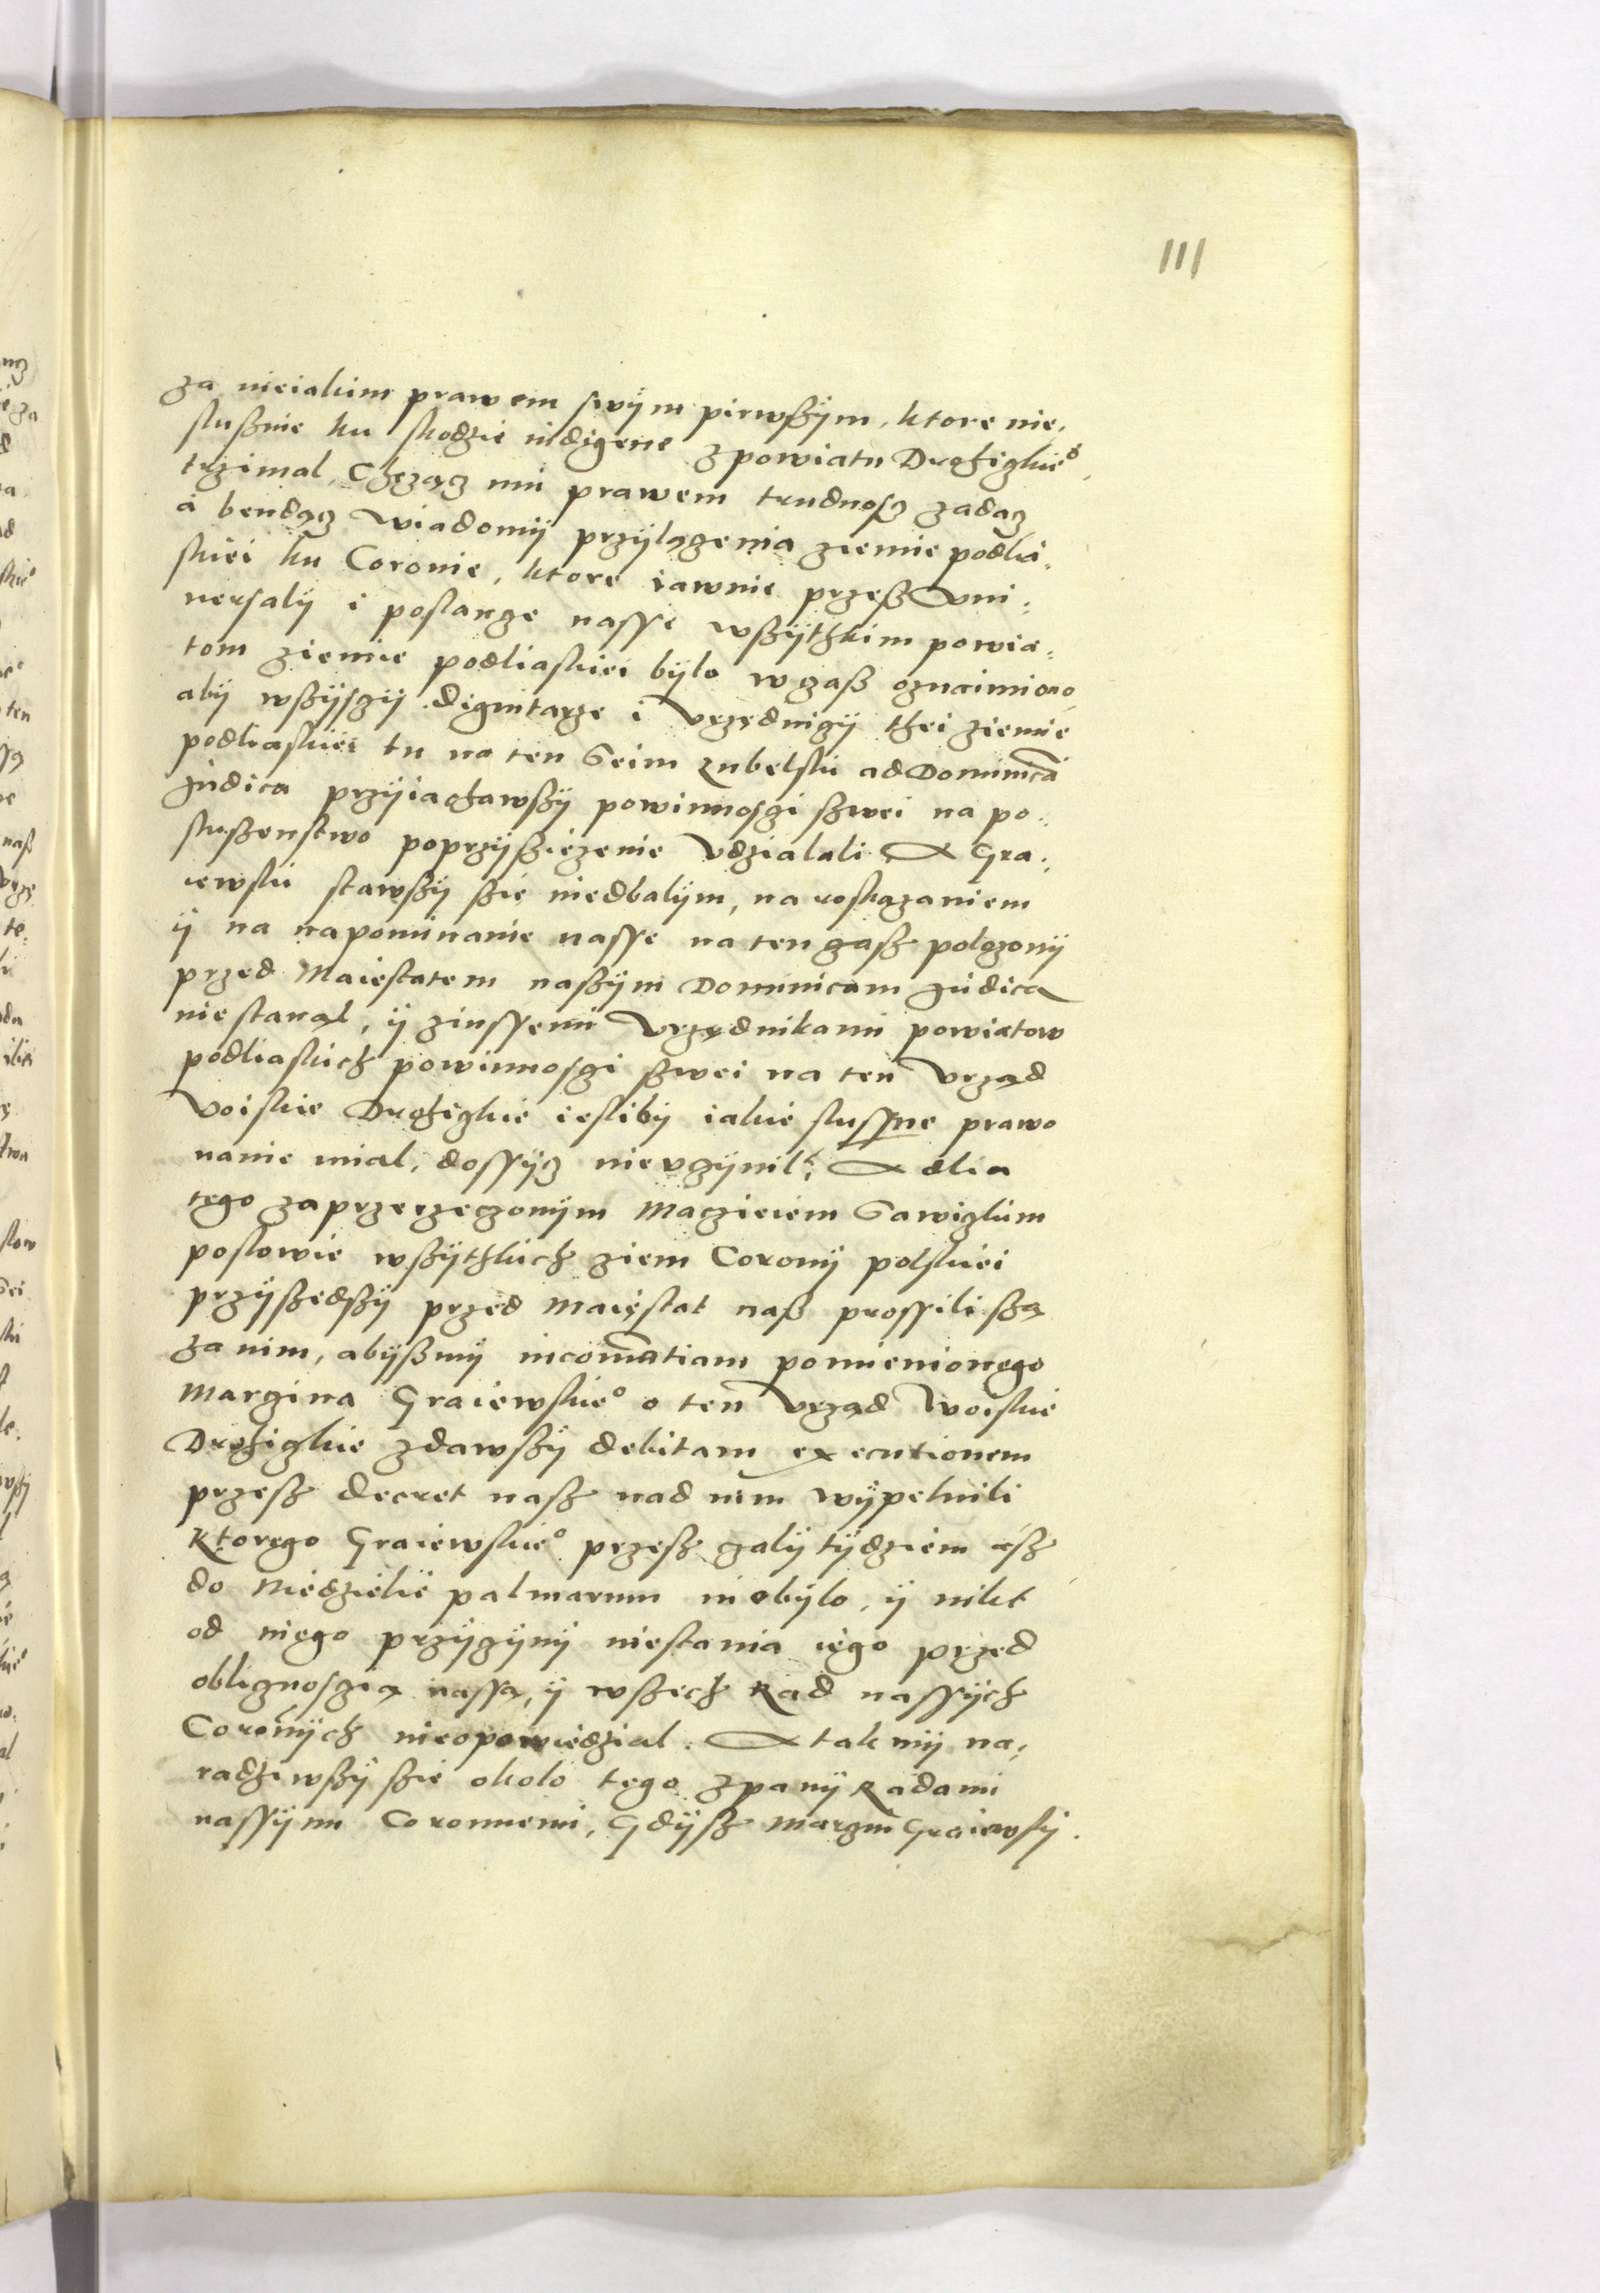 111
za nieiakim prawem swÿm pirwßÿm, ktore nie,
slußnie ku skodzie indigene z powiatu Drohiczkie°
trzimal, Chczącz mu prawem trudnoscz zadacz
a bendącz wiadomÿ przÿlączenia ziemie podlia,
skiei ku Coronie, ktore iawnie przeß Vni,
uersalÿ i poslancze nasse wßÿthkim powia,
tom ziemie podliaskiei bÿlo w czaß oznaimiono
abÿ wßÿsczÿ dignitarze i vrzędniczÿ thei ziemie
podliaskiei tu na ten Seim Lubelski ad Dominicā
Judica przÿiachawßÿ powinnosczi ßwei na po,
slußenstwo poprzÿßiezenie vdzialali A Gra,
iewski stawßÿ ßie niedbalÿm, na roskazaniem
ÿ na napominanie nasse na ten czaß polozonÿ
przed Maiestatem naßÿm Dominicam Judica
niestanąl, ÿ z inssemi vrzędnikami powiatow
podliaskich powinnosczi ßwei na ten vrząd
Voiskie Drohiczkie ieslibÿ iakie slussne prawo
nanie mial, dossÿcz nievczÿnil, A dlia
tego zaprzerzeczonÿm Maczieiem Sawiczkim
poslowie wßÿthkich ziem Coronÿ polskiei
przÿßedßÿ przed Maiestat naß prossili ßą
za nim, abÿßmÿ in contumatiam pomienionego
Marcina Graiewskie° o ten vrząd woiskie
Drohiczkie zdawßÿ debitam executionem
przeß decret naß nad nim wÿpelnili
Ktorego Graiewskie° przeß calÿ tÿdziem aß
do Niedzielie palmarum niebÿlo, ÿ nikt
od niego przÿczÿnÿ niestania iego przed
oblicznosczią nassą, ÿ wßech Rad nassÿch
Coronÿch nieopowiedzial. A tak mÿ na,
radziwßÿ ßie okolo tego z panÿ Radami
nassÿmi Coronnemi, Gdÿß Marcin Graiewskÿ.